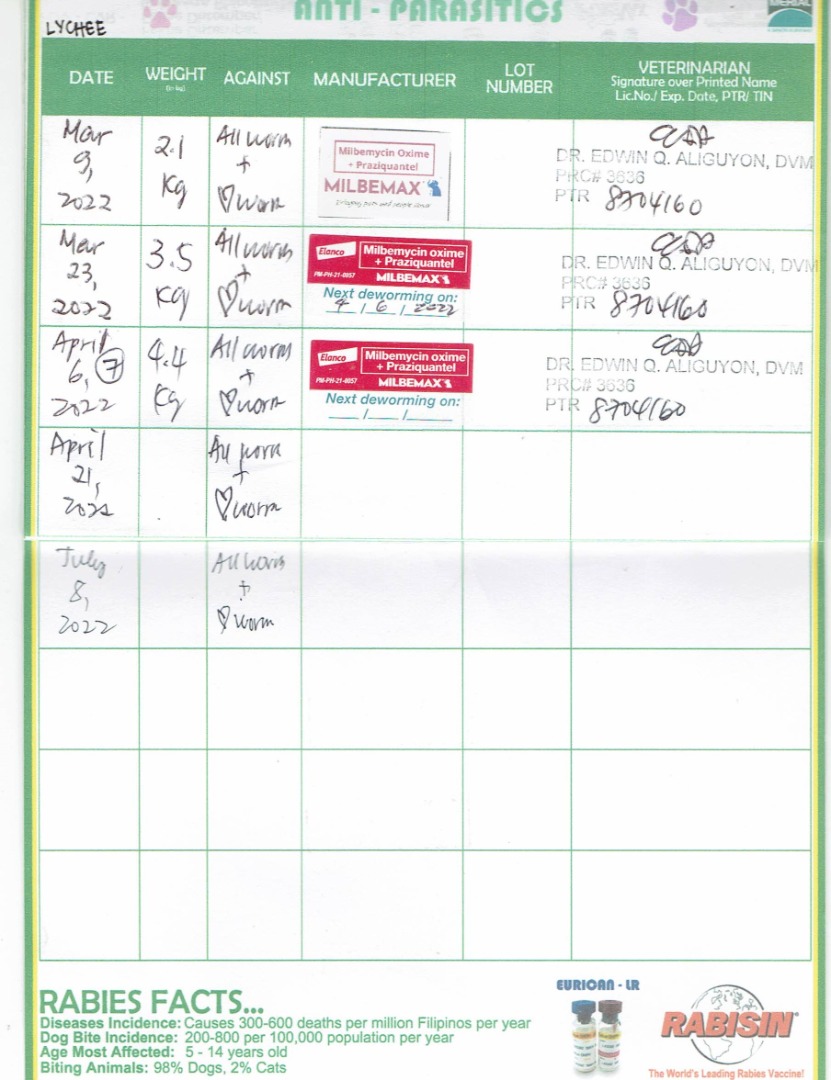 ANTI - PARASITICS
MERIAL
LYCHEE
DATE WEIGHT (in kg) AGAINST MANUFACTURER LOT NUMBER VETERINARIAN
Signature over Printed Name
Lic.No./ Exp. Date, PTR/ TIN
Mar 9, 2022
2.1 Kg
All worm + ♡worm
Milbemycin Oxime
+ Praziquantel
MILBEMAX
DR. EDWIN Q. ALIGUYON, DVM
PRC# 3636
PTR 8704160
Mar 23, 2022
3.5 Kg
All worms + ♡worm
Elanco
Milbemycin oxime
+ Praziquantel
PM-PH-21-0057 MILBEMAX
Next deworming on:
4 / 6 / 2022
DR. EDWIN Q. ALIGUYON, DVM
PRC# 3636
PTR 8704160
April 6, 7 2022
4.4 Kg
All worms + ♡worm
Elanco
Milbemycin oxime
+ Praziquantel
PM-PH-21-0057 MILBEMAX
Next deworming on:
__/__/____
DR. EDWIN Q. ALIGUYON, DVM
PRC# 3636
PTR 8704160
April 21, 2022
All worm + ♡worm
July 8, 2022
All worm + ♡worm
RABIES FACTS...
Diseases Incidence: Causes 300-600 deaths per million Filipinos per year
Dog Bite Incidence: 200-800 per 100,000 population per year
Age Most Affected: 5 - 14 years old
Biting Animals: 98% Dogs, 2% Cats
EURICAN - LR
RABISIN
The World's Leading Rabies Vaccine!